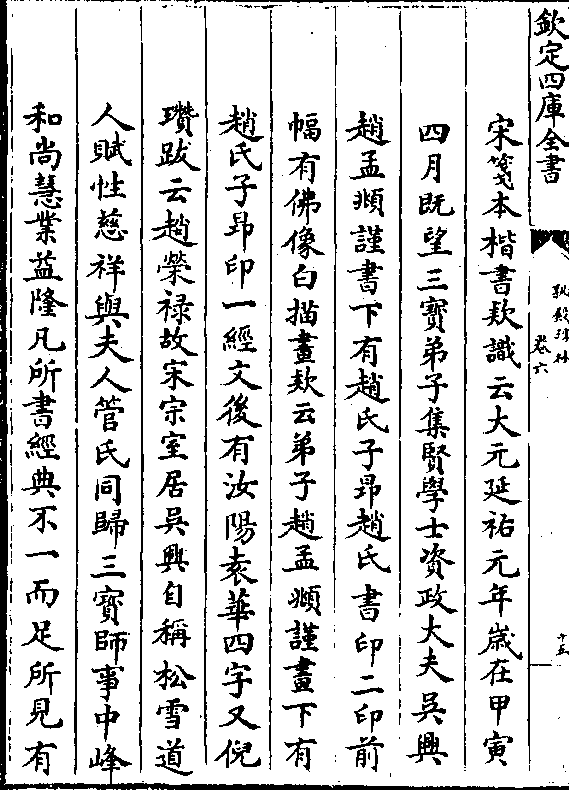 欽定四庫全書
卷六
十五
宋箋本楷書款識云大元延祐元年歲在甲寅
四月既望三寶弟子集賢學士資政大夫吳興
趙孟頫謹書下有趙氏子昂趙氏書印二印前
幅有佛像白描畫款云弟子趙孟頫謹畫下有
趙氏子昂印一經文後有汝陽袁華四字又倪
瓚跋云趙榮禄故宋宗室居吳興自稱松雪道
人賦性慈祥與夫人管氏同歸三寶師事中峰
和尚慧業益隆凡所書經典不一而足所見有